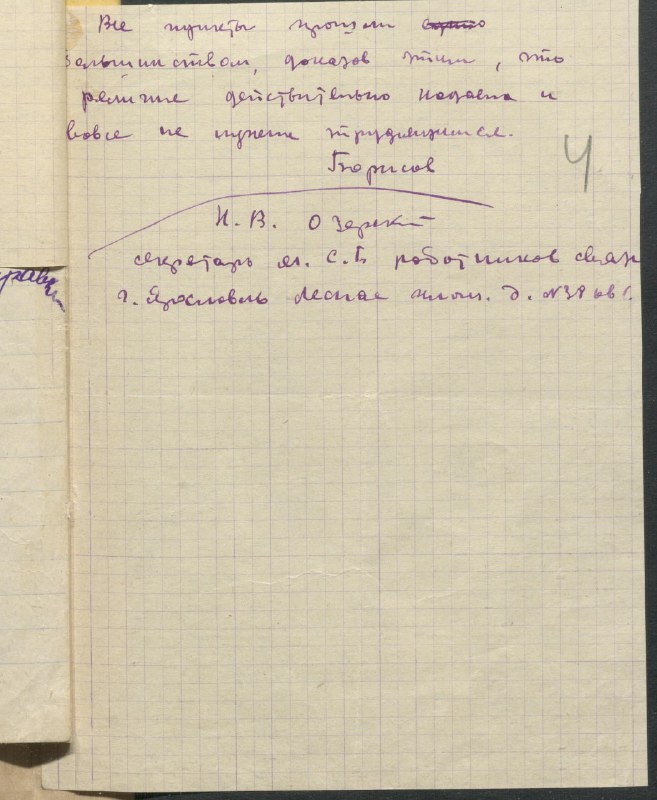 Все пункты прошли
большинством, доказав этим, что
религия действительно надоела и
вовсе не нужна трудящимся.
Борисов
4
Н. В. Озерский
секретарь м. С.Б работников связи
г. Ярославль Лесная площ. д. №38 кв 1.